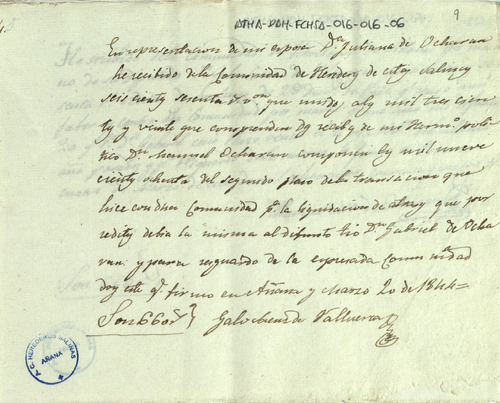 ATHA-DAH-FCHSA-016-016-06
9
En representacion de mi esposa Dª Juliana de Ocharan
he recibido de la Comunidad de Hereds de estas Salinas
seiscientos sesenta rs von que unidos a los mil trescien
tos y veinte que comprenden los recibos de mi Hermo poli
tico Dn Manuel Ocharan componen los mil nueve
cientos ochenta del segundo plazo de la transacion que
hice con dha Comunidad pr la liquidacion de atrasos que por
reditos debia la misma al difunto tio Dn Gabriel de Ocha
ran: y para resguardo de la espresada Comunidad
doy este qe firmo en Añana y Marzo 20 de 1844=
Son 660 rs
A.C. HEREDEROS SALINAS
AÑANA